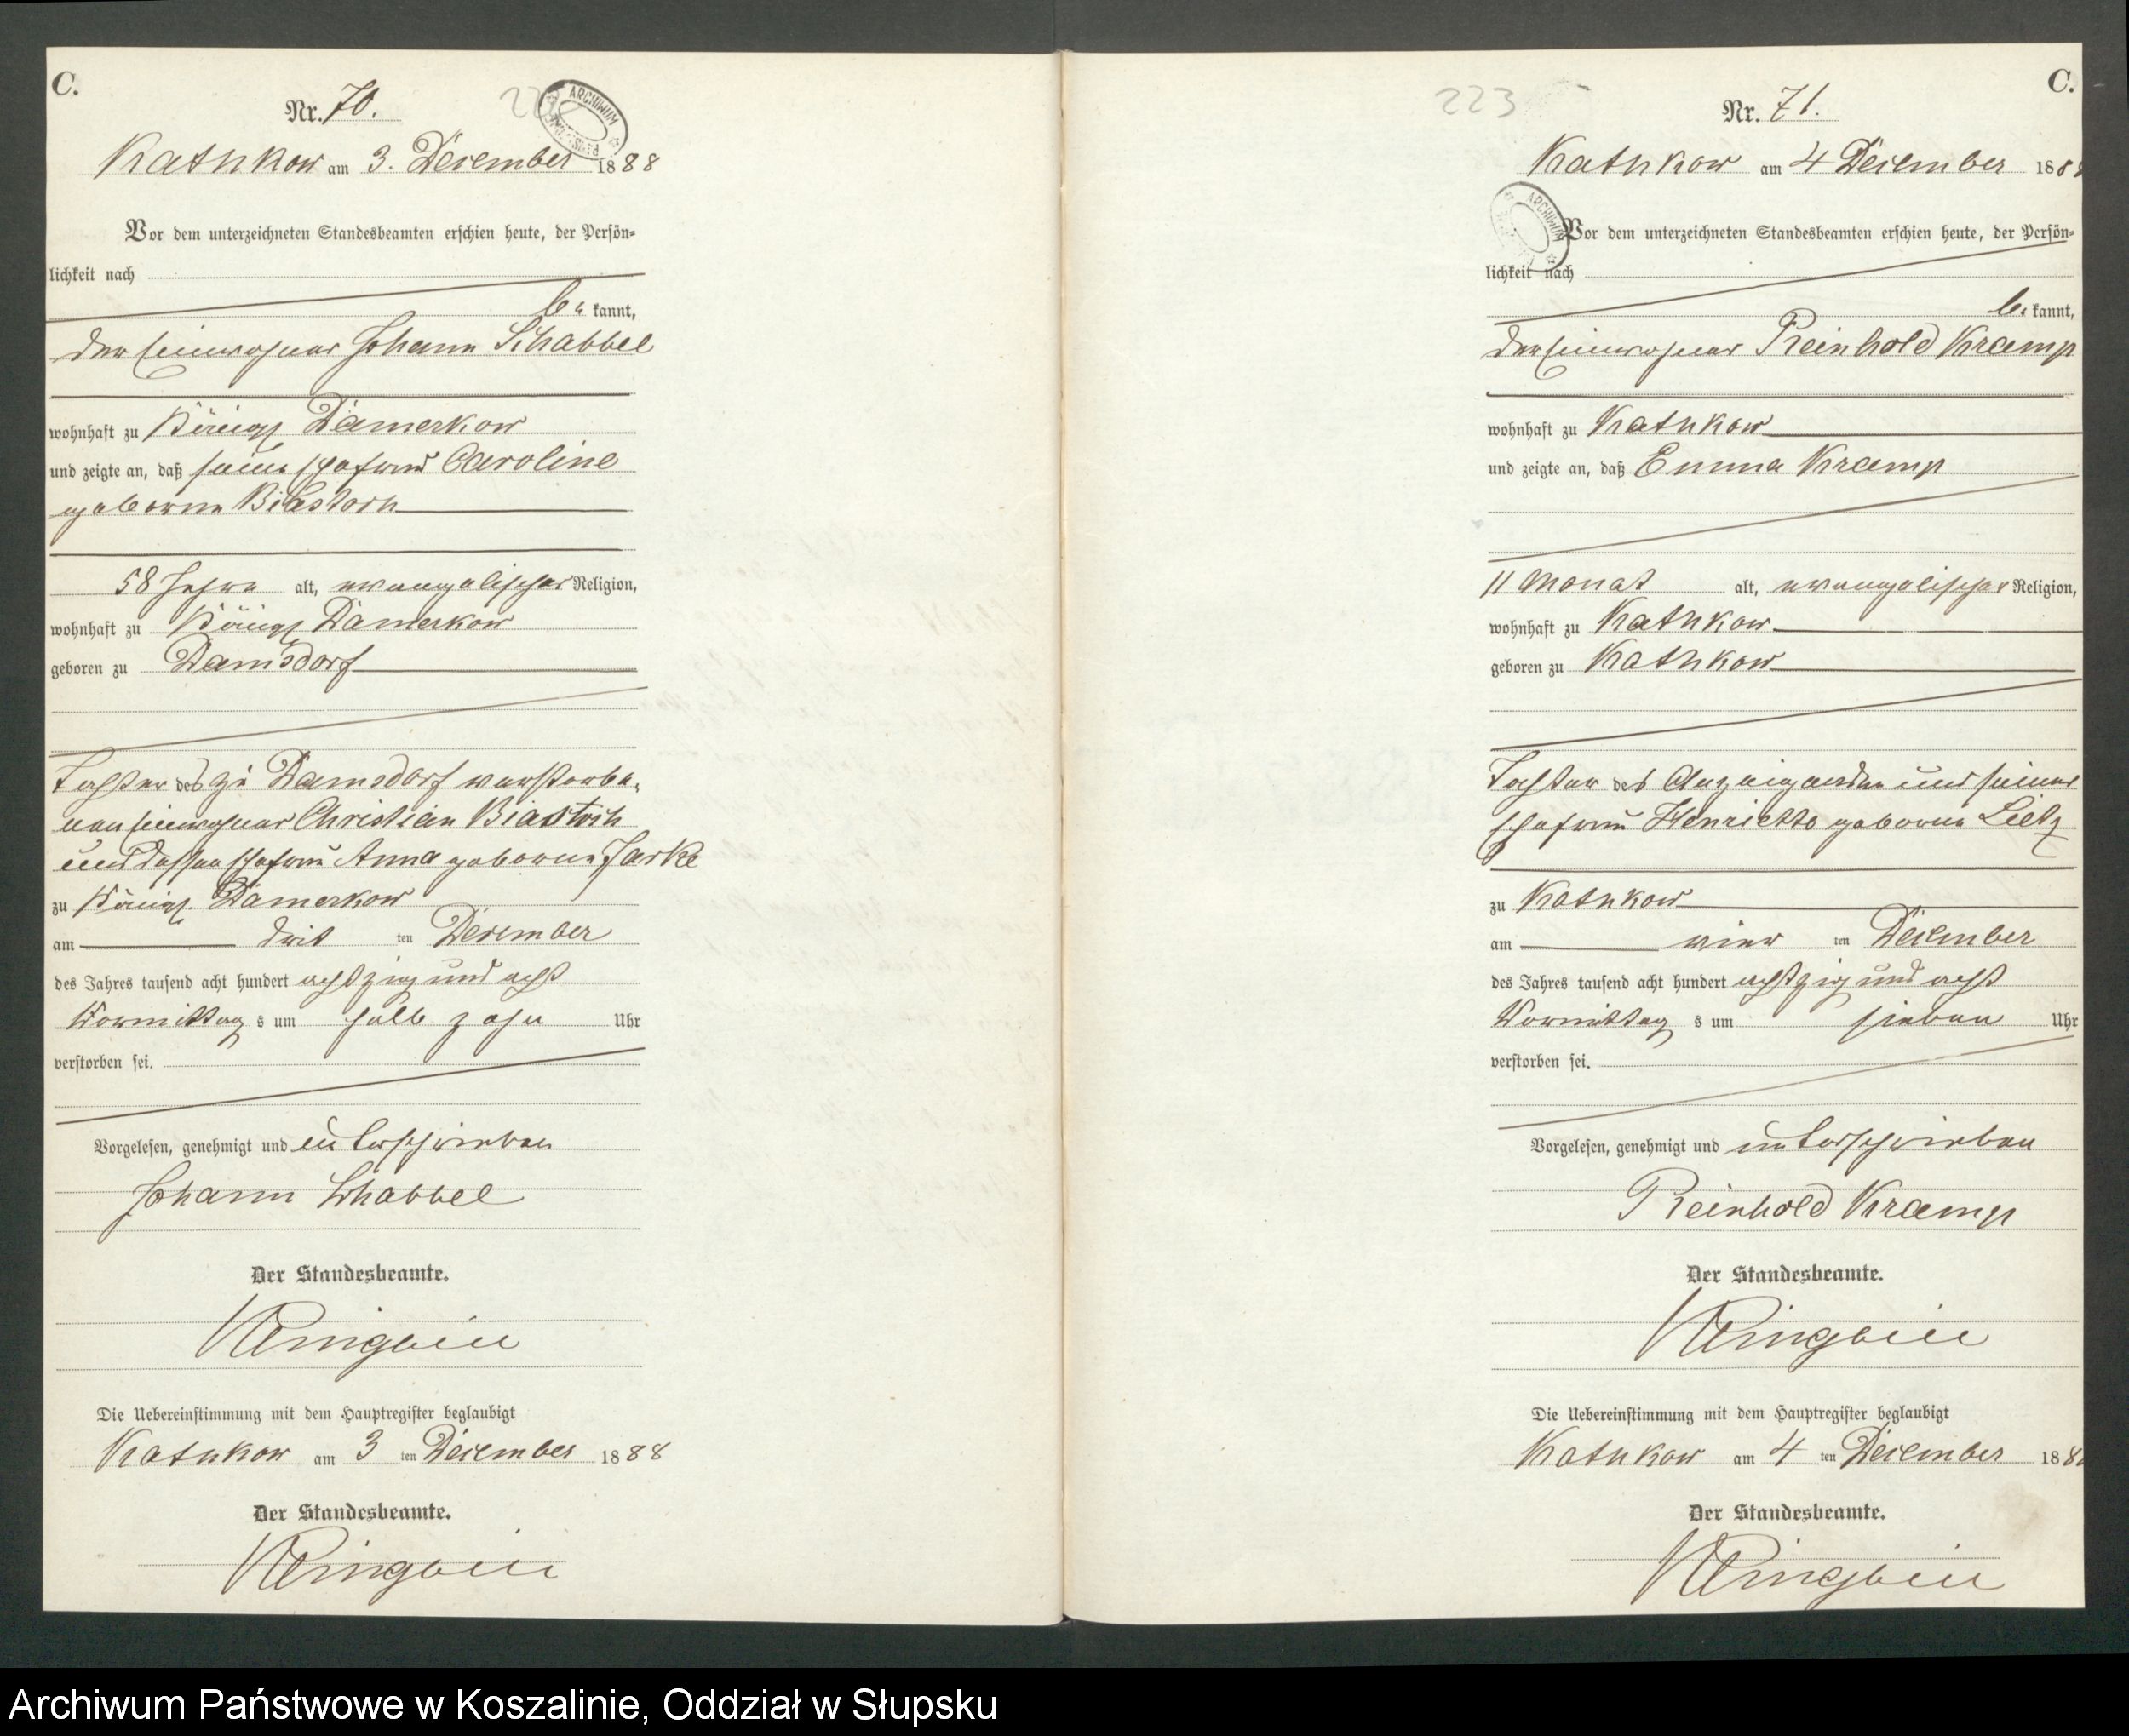 C.
Nr. 70.
ARCHIWUM
Kathkow am 3. Dezember 1888
Vor dem unterzeichneten Standesbeamten erschien heute, der Persön-
lichkeit nach
be kannt,
der Einwohner Johann Schabbel
wohnhaft zu Königl Damerkow
und zeigte an, daß seine Ehefrau Caroline
geborene Biastoch
58 Jahre alt, evangelischer Religion,
wohnhaft zu Königl Damerkow
geboren zu Damsdorf
Tochter des zu Damsdorf verstorbe-
nen Einwohner Christian Biastoch
und dessen Ehefrau Anna geborene Jarke
zu Königl. Damerkow
am drit ten Dezember
des Jahres tausend acht hundert achtzig und acht
Vormittag s um halb zehn Uhr
verstorben sei.
Vorgelesen, genehmigt und unterschrieben
Johann Schabbel
Der Standesbeamte.
Die Uebereinstimmung mit dem Hauptregister beglaubigt
Kathkow am 3 ten Dezember 1888
Der Standesbeamte.
C.
223
Nr. 71.
Kathkow am 4 Dezember 188
ARCHIWUM
Vor dem unterzeichneten Standesbeamten erschien heute, der Persön-
lichkeit nach
be kannt,
der Einwohner Reinhold Kramp
wohnhaft zu Kathkow
und zeigte an, daß Emma Kramp
11 Monat alt, evangelischer Religion,
wohnhaft zu Kathkow
geboren zu Kathkow
Tochter des Anzeigenden und seiner
Ehefrau Henriette geborene Lietz
zu Kathkow
am vier ten Dezember
des Jahres tausend acht hundert achtzig und acht
Vormittag s um sieben Uhr
verstorben sei.
Vorgelesen, genehmigt und unterschrieben
Reinhold Kramp
Der Standesbeamte.
Die Uebereinstimmung mit dem Hauptregister beglaubigt
Kathkow am 4 ten Dezember 188
Der Standesbeamte.
Archiwum Państwowe w Koszalinie, Oddział w Słupsku